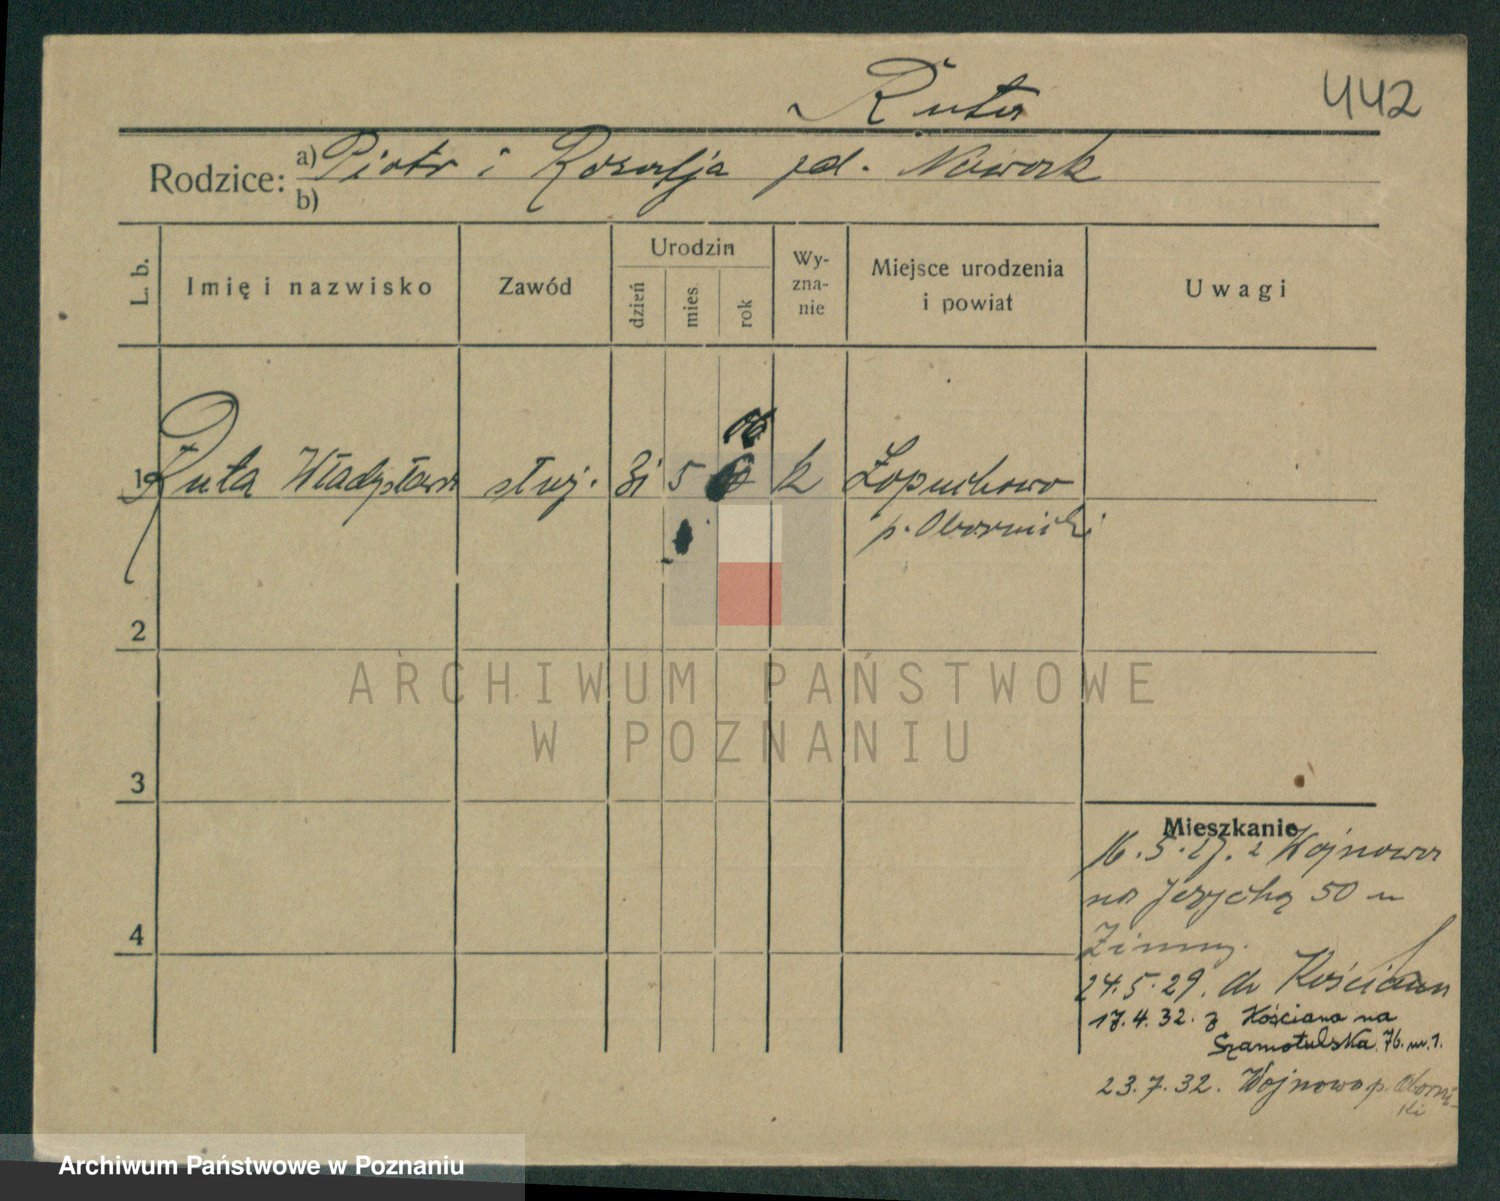 442
Ruta
Rodzice: a) Piotr i Rozalja zd. Nowak
b)
L. b.
Imię i nazwisko
Zawód
Urodzin
dzień
mies.
rok
Wy-
zna-
nie
Miejsce urodzenia
i powiat
Uwagi
06
1 Ruta Władysława służ. 31 5 k Łopuchowo
p. Oborniki
2
3
4
Mieszkanie
16.5.27. z Wojnowa
na 50 u
24.5.29. do Kościan
17.4.32. z Kościana na
Szamotulska 76. m. 1.
23.7.32. Wojnowo p. Oborni-
ki
ARCHIWUM PAŃSTWOWE
W POZNANIU
Archiwum Państwowe w Poznaniu